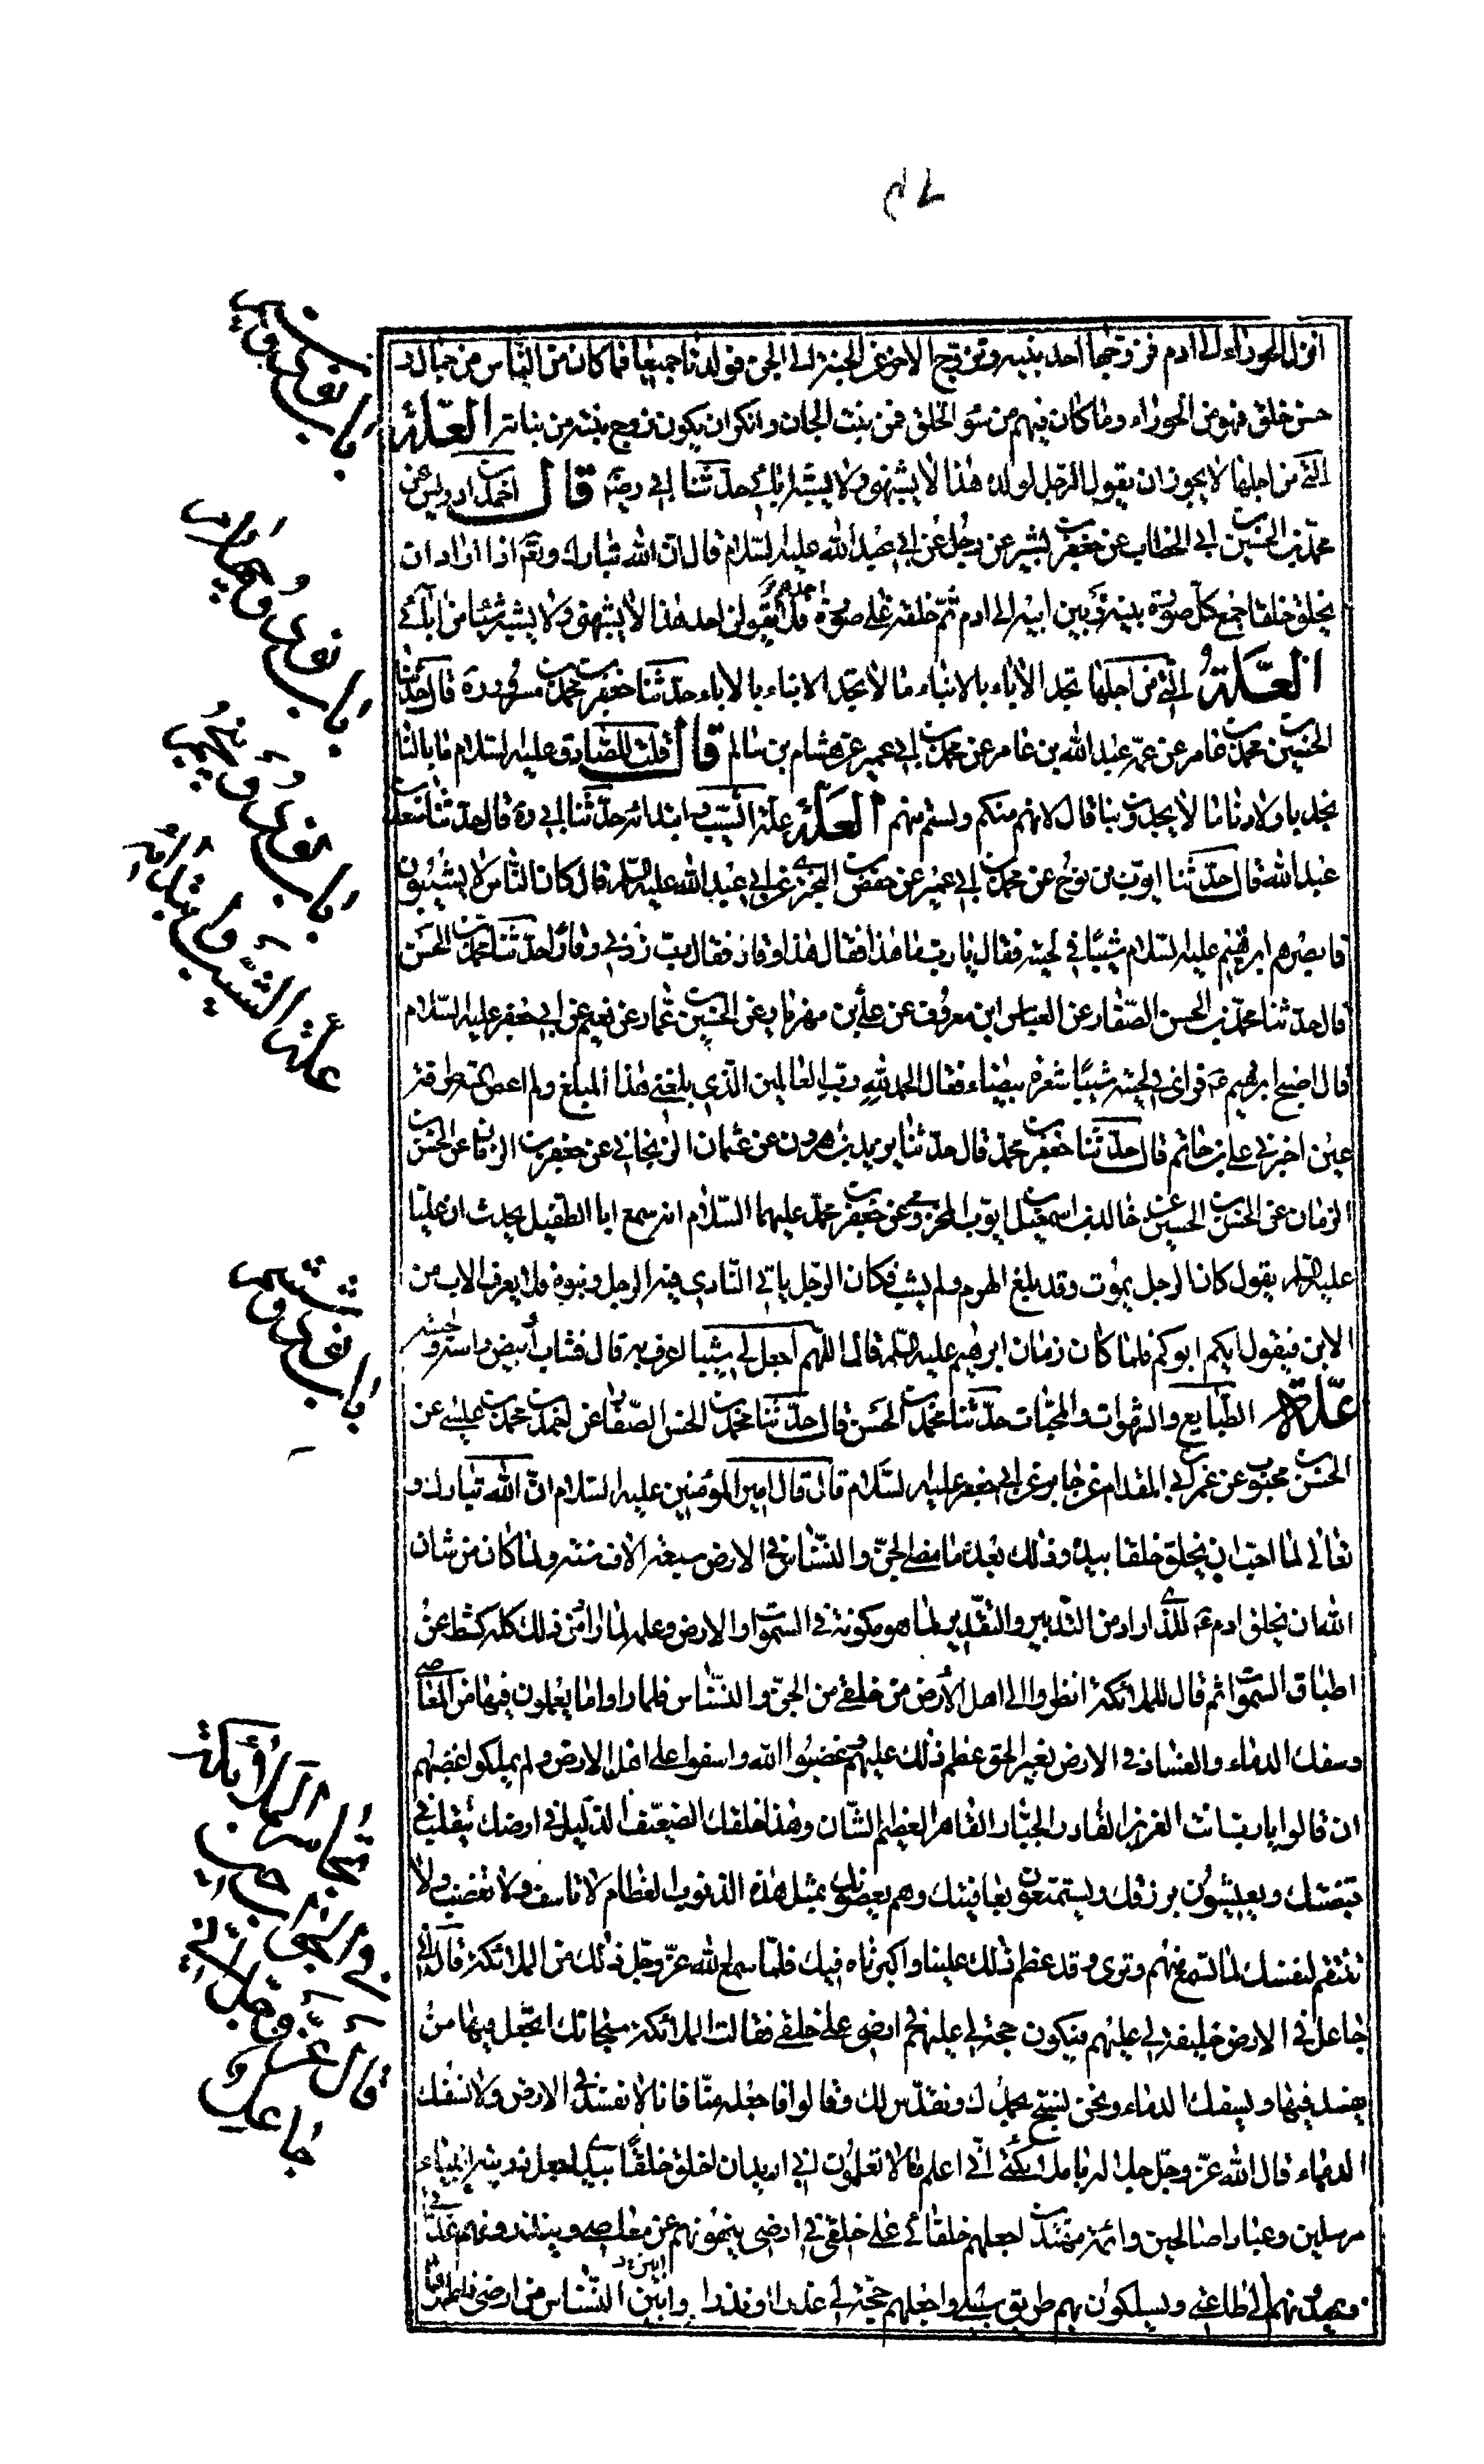 انزل الحوراء الى ادم فزوجها احد بنيه وتزوج الاخر عن الجنة الى الجن فولدتا جميعا فما كان من الناس من جمال و
حسن خلق فهو من الحوراء وما كان فيهم من سوء الخلق فمن بنت الجان وانكر ان يكون زوج بنيه من بناته العلة
التي من اجلها لا يجوز ان يقول الرجل لولده هذا لا يشبهني ولا يشبه ابائي حدثنا ابي رضه قال احمد بن ادريس عن
محمد بن الحسين بن ابي الخطاب عن جعفر بن بشير عن رجل عن ابي عبد الله عليه السلام قال ان الله تبارك وتع اذا اراد ان
يخلق خلقا جمع كل صورة بينه وبين ابيه الى ادم ثم خلقه على صورة احدهم فلا يقولن احد هذا لا يشبهني ولا يشبه شيئا من ابائي
العلة التي من اجلها تجد الاباء بالابناء ما لا تجد الابناء بالاباء حدثنا جعفر بن محمد بن مسرور ره قال حدثنا
الحسين بن محمد بن عامر عن عمه عبد الله بن عامر عن محمد بن ابي عمير عن هشام بن سالم قال قلت للصادق عليه السلام ما بالنا
نجد باولادنا ما لا يجدون بنا قال لانهم منكم ولستم منهم العلة علة الشيب وابتدائه حدثنا ابي ره قال حدثنا سعد بن
عبد الله قال حدثنا ايوب بن نوح عن محمد بن ابي عمير عن حفص بن البختري عن ابي عبد الله عليه السلم قال كان الناس لا يشيبون
فابصر ابرهيم عليه السلام شيبا في لحيته فقال يا رب ما هذا فقال هذا وقار فقال رب زدني وقارا حدثنا محمد بن الحسن
قال حدثنا محمد بن الحسن الصفار عن العباس ابن معروف عن علي بن مهزيار عن الحسين بن عمار عن نعيم عن ابي جعفر عليه السلام
قال اصبح ابرهيم ع فراى في لحيته شيبا شعرة بيضاء فقال الحمد لله رب العالمين الذي بلغني هذا المبلغ ولم اعص الله طرفة
عين اخبرني علي بن حاتم قال حدثنا جعفر بن محمد قال حدثنا يزيد بن هرون عن عثمان الزنجاني عن جعفر بن الزمان عن الحسن بن
الزمان عن الحسن بن الحسين عن خالد بن اسمعيل بن ايوب المخزومي عن جعفر بن محمد عليهما السلام انه سمع ابا الطفيل يحدث ان عليا
عليه السلم يقول كان الرجل يموت وقد بلغ الهرم ولم يشب فكان الرجل ياتي النادي فيه الرجل وبنوه فلا يعرف الاب من
الابن فيقول ايكم ابوكم فلما كان زمان ابرهيم عليه السلم قال اللهم اجعل لي شيبا اعرف به قال فشاب وابيض راسه ولحيته
علة الطبايع والشهوات والمحبات حدثنا محمد بن الحسن قال حدثنا محمد بن الحسن الصفار عن احمد بن محمد بن عيسى عن
الحسن بن محبوب عن عمرو بن ابي المقدام عن جابر عن ابي جعفر عليه السلام قال قال امير المؤمنين عليه السلام ان الله تبارك و
تعالى لما احب ان يخلق خلقا بيده وذلك بعد ما مضى الجن والنسناس في الارض سبعة الاف سنة ولما كان من شان
الله ان يخلق ادم ع للذي اراد من التدبير والتقدير لما هو مكونه في السموات والارض وعلمه لما اراد من ذلك كله كشط عن
اطباق السموات ثم قال للملائكة انظروا الى اهل الارض من خلقي من الجن والنسناس فلما راوا ما يعملون فيها من المعاصي
وسفك الدماء والفساد في الارض بغير الحق عظم ذلك عليهم وغضبوا لله واسفوا على اهل الارض ولم يملكوا غضبهم
ان قالوا يا رب انت العزيز القادر الجبار القاهر العظيم الشان وهذا خلقك الضعيف الذليل في ارضك يتقلب في
قبضتك ويعيشون برزقك ويستمتعون بعافيتك وهم يعصونك بمثل هذه الذنوب العظام لا تاسف ولا تغضب ولا
تنتقم لنفسك لما تسمع منهم وترى وقد عظم ذلك علينا واكبرناه فيك فلما سمع الله عز وجل ذلك من الملائكة قال اني
جاعل في الارض خليفة لي عليهم فيكون حجة لي عليهم في ارضي على خلقي فقالت الملائكة سبحانك اتجعل فيها من
يفسد فيها ويسفك الدماء ونحن نسبح بحمدك ونقدس لك وقالوا فاجعله منا فانا لا نفسد في الارض ولا نسفك
الدماء قال الله عز وجل جل يا ملائكتي اني اعلم ما لا تعلمون اني اريد ان اخلق خلقا بيدي اجعل ذريته انبياء
مرسلين وعبادا صالحين وائمة مهتدين اجعلهم خلفائي على خلقي في ارضي ينهونهم عن معاصي وينذرونهم عذابي
ويهدونهم الى طاعتي ويسلكون بهم طريق سبيلي واجعلهم حجة لي عذرا ونذرا وابين النسناس من ارضي فاطهرها
باب نود و سيم
باب نود و چهارم
باب نود و پنجم
علة الشيب وابتدائه
باب نود و ششم
قال عز وجل اني
جاعل